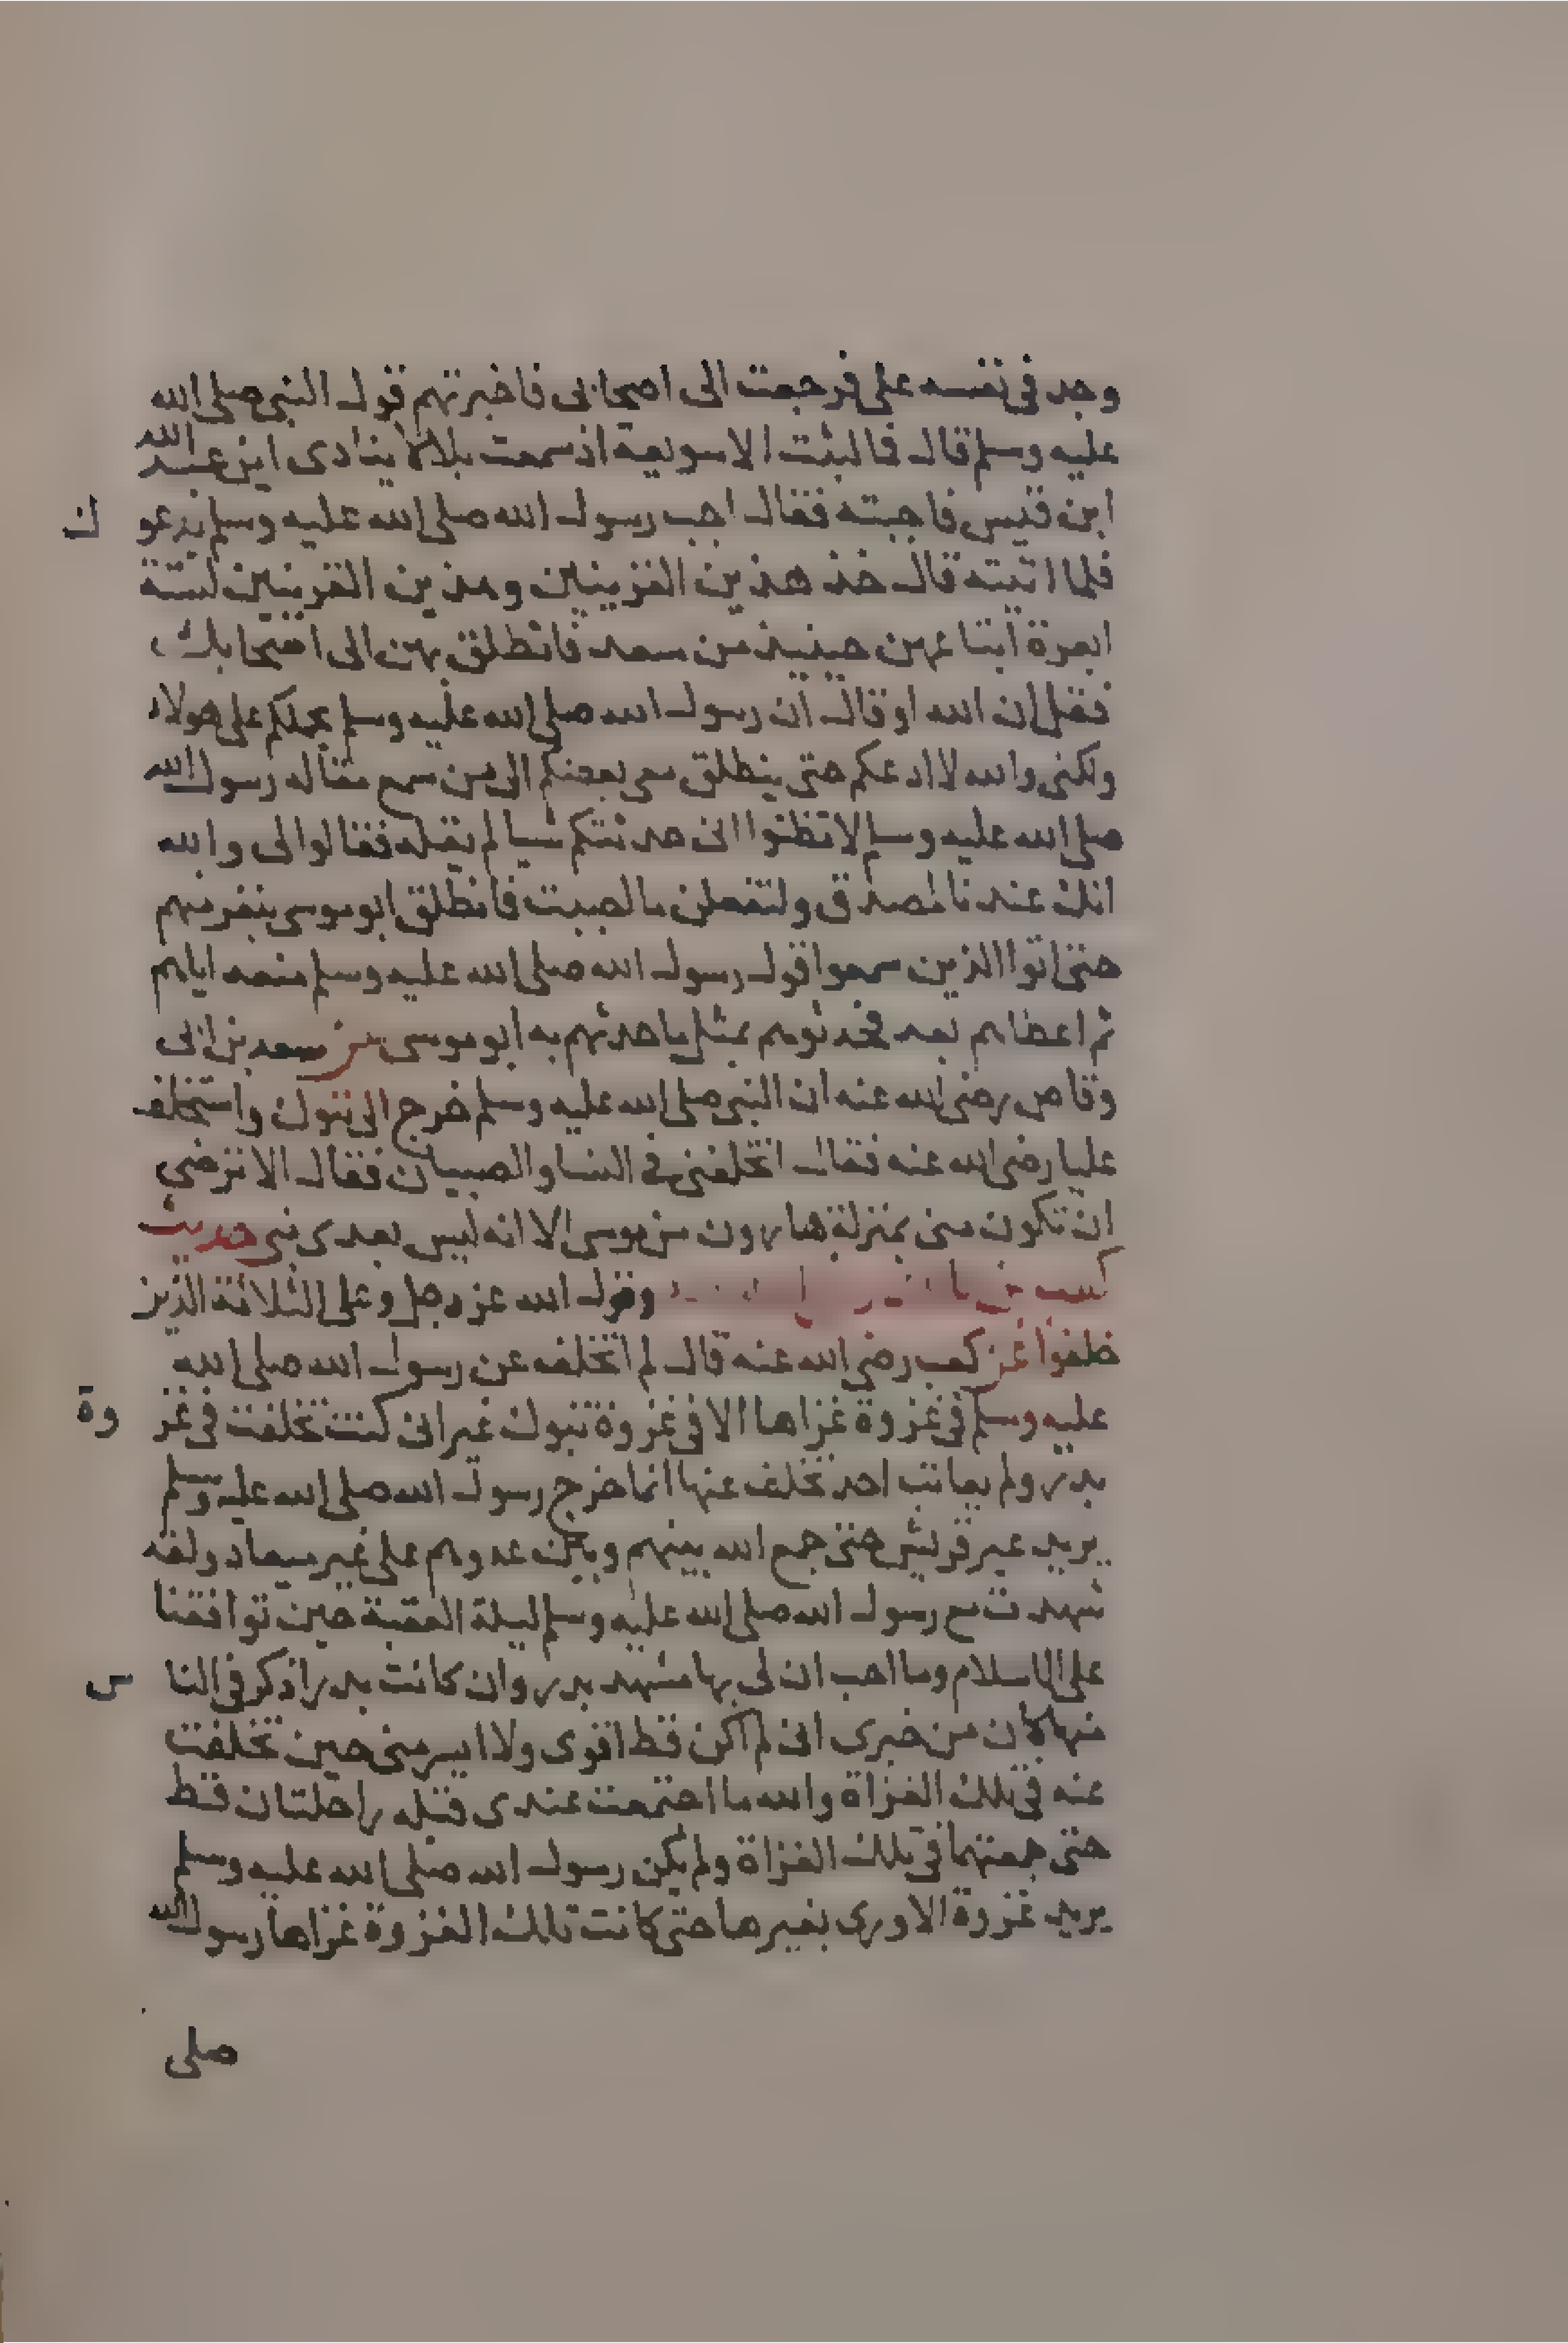 وجد في نفسه على فرجعت الى اصحابى فاخبرتهم قول النبي صلى الله
عليه وسلم قال فما لبثت الا سويعة اذ سمعت بلالا ينادى اين عبد الله
ابن قيس فاجبته فقال اجب رسول الله صلى الله عليه وسلم يدعوك
فلما اتيته قال خذ هذين القرينين وهذين القرينين لستة
ابعرة ابتاعهن حينيذ من سعد فانطلق بهن الى اصحابك
فقل ان الله او قال ان رسول الله صلى الله عليه وسلم يحملكم على هولاء
ولكنى والله لا ادعكم حتى ينطلق معى بعضكم الى من سمع مقالة رسول الله
صلى الله عليه وسلم لا تظنوا انى حدثتكم شيا لم يقله فقالوا لى والله
انك عندنا لمصدق ولنفعلن ما احببت فانطلق ابو موسى بنفر منهم
حتى اتوا الذين سمعوا قول رسول الله صلى الله عليه وسلم منعه اياهم
ثم اعطاهم بعد فحدثوهم بمثل ما حدثهم به ابو موسى عن سعد بن ابى
وقاص رضى الله عنه ان النبي صلى الله عليه وسلم خرج الى تبوك واستخلف
عليا رضى الله عنه فقال اتخلفنى في النسا والصبيان فقال الا ترضى
ان تكون منى بمنزلة هارون من موسى الا انه ليس بعدى نبى حديث
كعب بن مالك وقول الله عز وجل وعلى الثلاثة الذين
خلفوا عن كعب رضى الله عنه قال لم اتخلف عن رسول الله صلى الله
عليه وسلم في غزوة غزاها الا في غزوة تبوك غير انى كنت تخلفت في غزوة
بدر ولم يعاتب احد تخلف عنها انما خرج رسول الله صلى الله عليه وسلم
يريد عير قريش حتى جمع الله بينهم وبين عدوهم على غير ميعاد ولقد
شهدت مع رسول الله صلى الله عليه وسلم ليلة العقبة حين تواثقنا
على الاسلام وما احب ان لى بها مشهد بدر وان كانت بدر اذكر في الناس
منها كان من خبرى انى لم اكن قط اقوى ولا ايسر منى حين تخلفت
عنه في تلك الغزاة والله ما اجتمعت عندى قبله راحلتان قط
حتى جمعتهما في تلك الغزاة ولم يكن رسول الله صلى الله عليه وسلم
يريد غزوة الا ورى بغيرها حتى كانت تلك الغزوة غزاها رسول الله
صلى